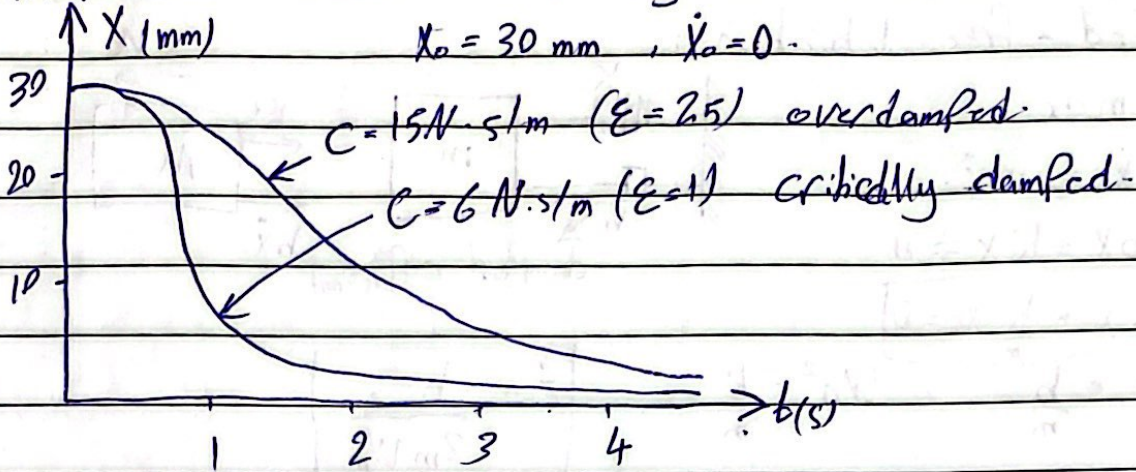 X (mm)
X₀ = 30 mm , Ẋ₀ = 0.
30
C = 15 N·s/m (ε = 2.5) overdamped.
20
C = 6 N·s/m (ε = 1) critically damped.
10
t(s)
1 2 3 4